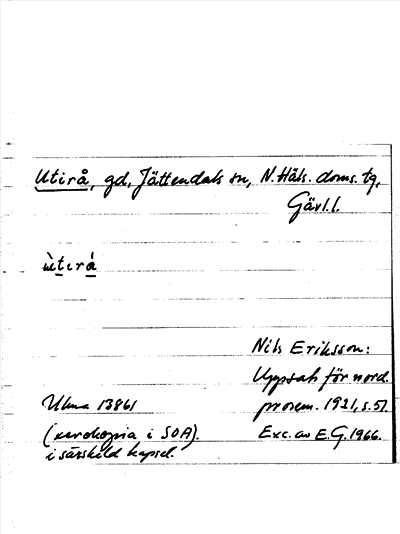 Utirå, gd, Jättendals sn, N. Häls. doms. tg,
Gävl. l.
ùtırá
Nils Eriksson:
Uppsats för nord.
prosem. 1921, s. 57.
Exc. av E. G. 1966.
Uma 13861
(xerokopia i SOA).
i särskild kapsel.